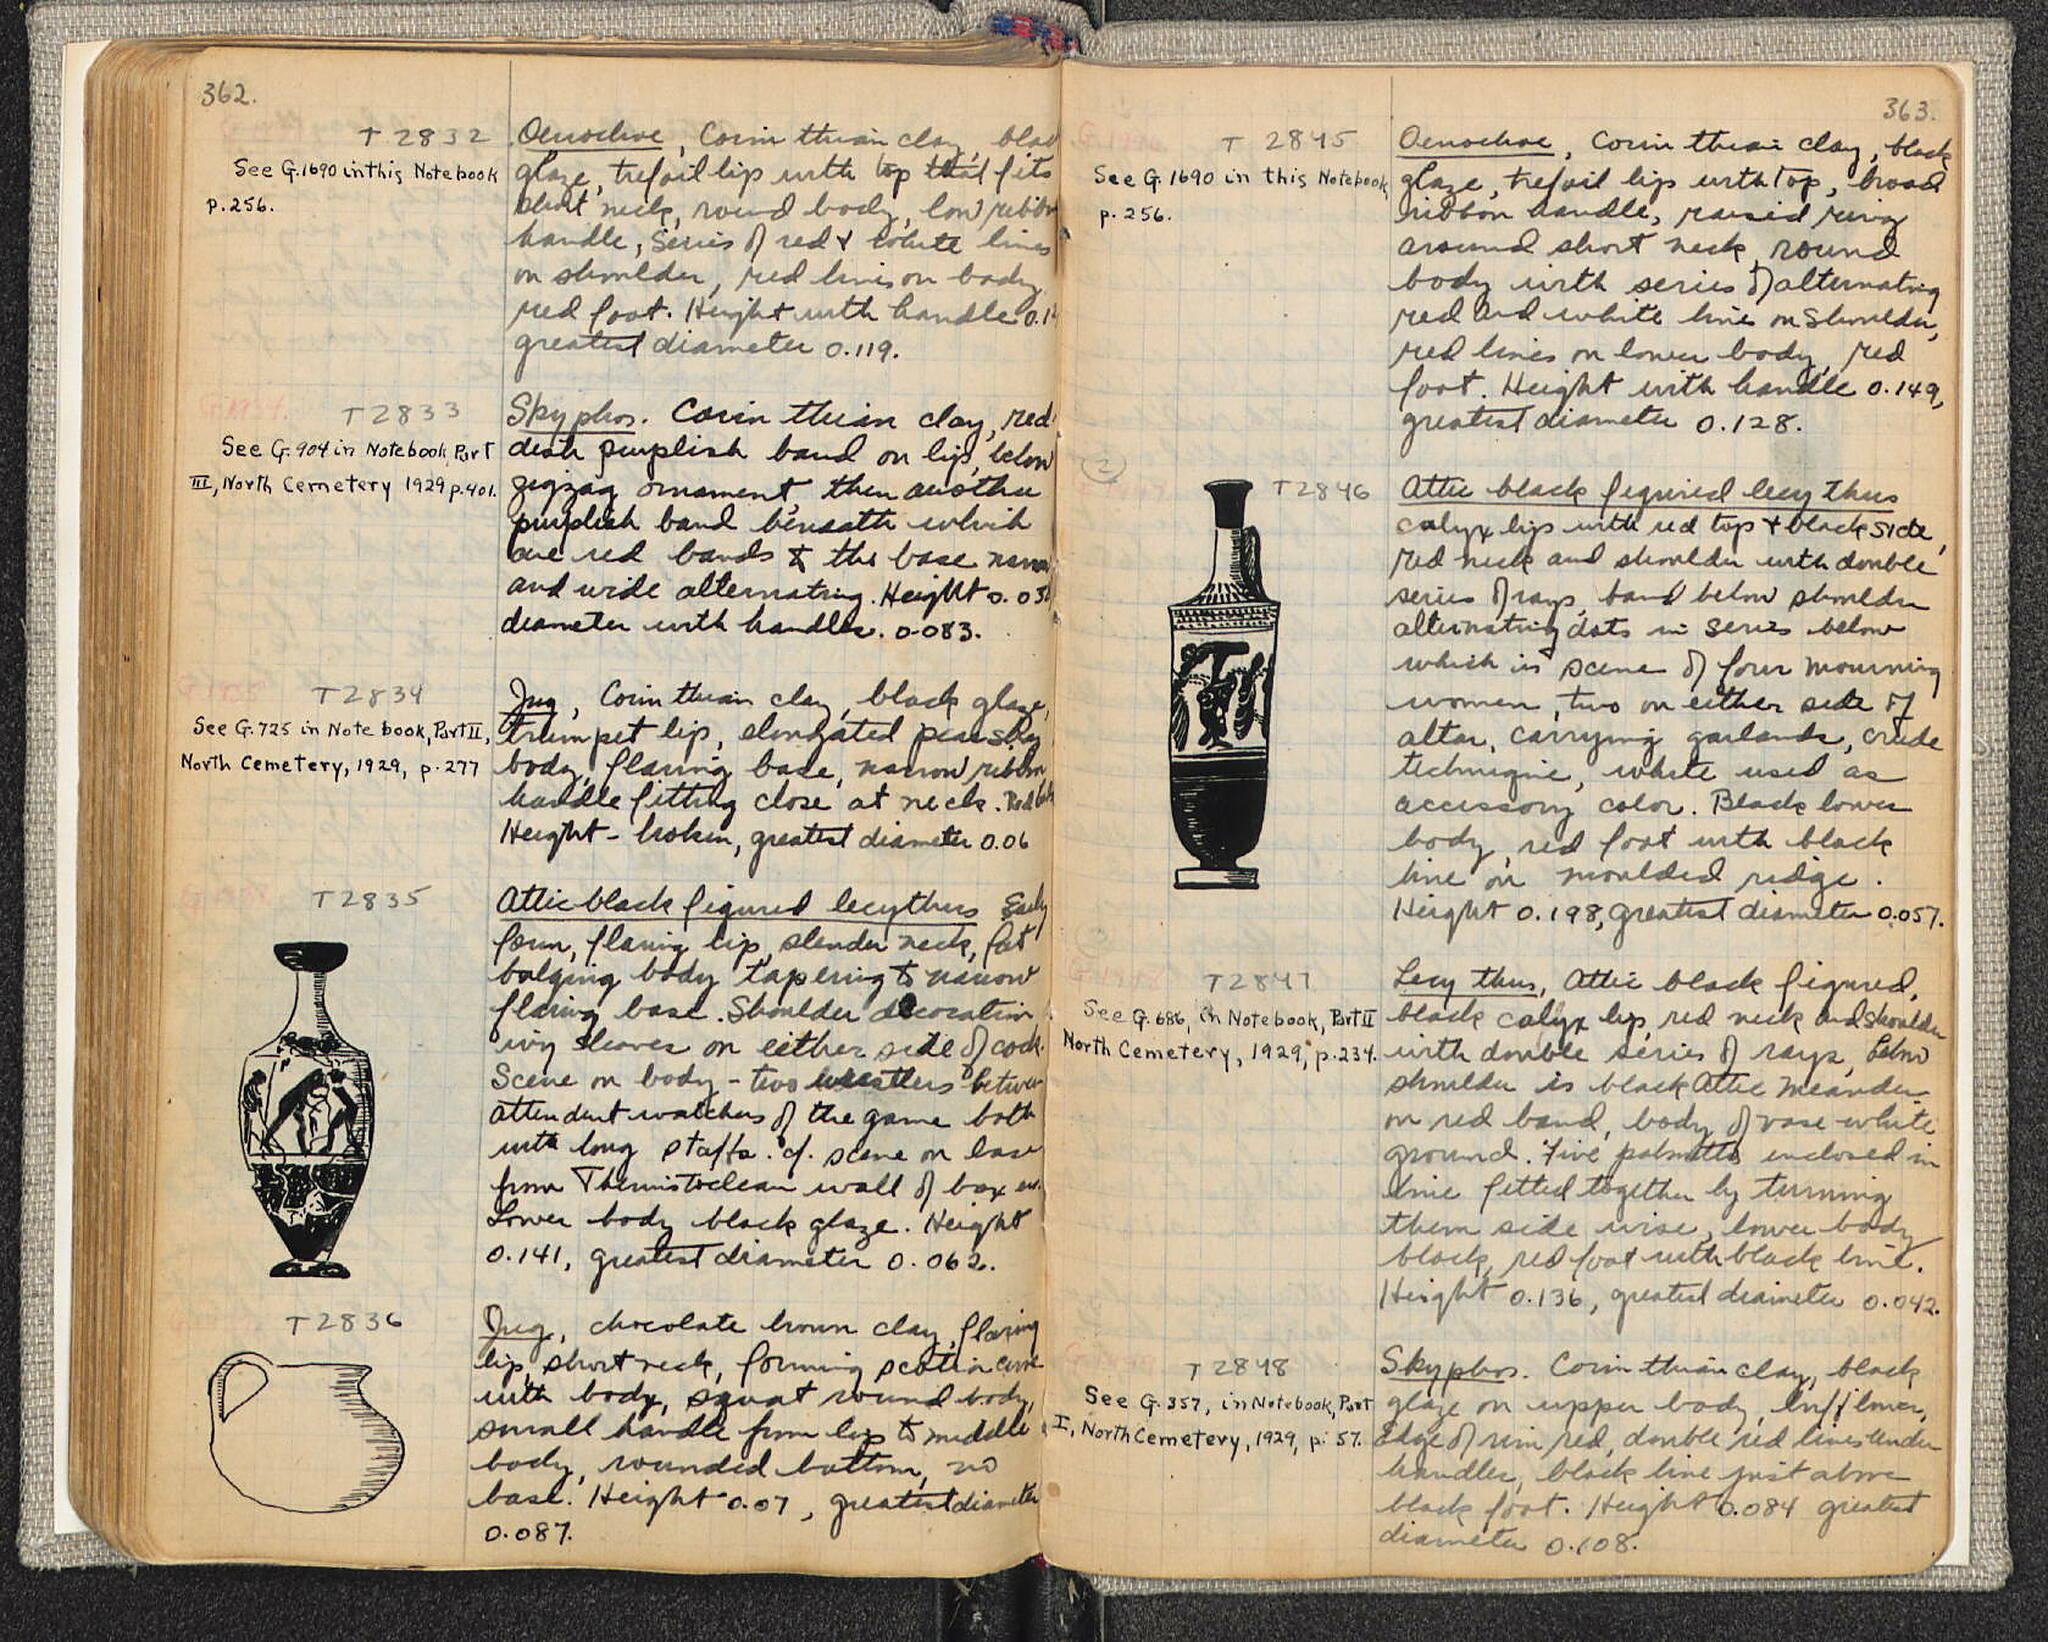 362.
T 2832
See G.1690 in this Notebook
p. 256.
Oenochoe, Corinthian clay, blac
glaze, trefoil lip with top that fits
short neck, round body, low ribbon
handle, series of red & white lines
on shoulder, red lines on body
red foot. Height with handle 0.1
greatest diameter 0.119.
T 2833
See G.904 in Notebook, Part
III, North Cemetery 1929 p.401.
Skyphos. Corinthian clay, red
dish purplish band on lip, below
zigzag ornament, then another
purplish band beneath which
are red bands to the base narrow
and wide alternating. Height 0.05
diameter with handles. 0.083.
T 2834
See G.725 in Note book, Part II,
North Cemetery, 1929, p.277
Jug, Corinthian clay, black glaze,
trumpet lip, elongated pearshap
body, flaring base, narrow ribbon
handle fitting close at neck. Red
Height - broken, greatest diameter 0.06
T 2835
Attic black figured lecythus Early
form, flaring lip, slender neck, fat
bulging body tapering to narrow
flaring base. Shoulder decoration
ivy leaves on either side of cock.
Scene on body - two wrestlers between
attendent watchers of the game both
with long staffs. cf. scene on base
from Themistoclean wall of
Lower body black glaze. Height
0.141, greatest diameter 0.062.
T 2836
Jug, chocolate brown clay, flaring
lip, short neck, forming scotia curve
with body, squat round body,
small handle from lip to middle
body, rounded bottom, no
base. Height 0.07, greatest diameter
0.087.
363.
T 2845
See G.1690 in this Notebook
p. 256.
Oenochoe, Corinthian clay, black
glaze, trefoil lip with top, broad
ribbon handle, raised ring
around short neck, round
body with series of alternating
red and white lines on shoulder,
red lines on lower body, red
foot. Height with handle 0.149,
greatest diameter 0.128.
2
T 2846
Attic black figured lecythus
calyx lip with red top & black side,
red neck and shoulder with double
series of rays, band below shoulder
alternating dots in series below
which is scene of four mourning
women, two on either side of
altar, carrying garlands, crude
technique, white used as
accessory color. Black lower
body, red foot with black
line on moulded ridge.
Height 0.198, greatest diameter 0.057.
T 2847
See G.686, in Notebook, Part II
North Cemetery, 1929, p.234.
Lecythus, Attic black figured,
black calyx lip, red neck and shoulder
with double series of rays, below
shoulder is black Attic meander
on red band, body of vase white
ground. Five palmettes enclosed in
line fitted together by turning
them side wise, lower body
black, red foot with black line.
Height 0.136, greatest diameter 0.042.
T 2848
See G.357, in Notebook, Part
I, North Cemetery, 1929, p. 57.
Skyphos. Corinthian clay, black
glaze on upper body, buff lower,
Edge of rim red, double red lines under
handles, black line just above
black foot. Height 0.084 greatest
diameter 0.108.